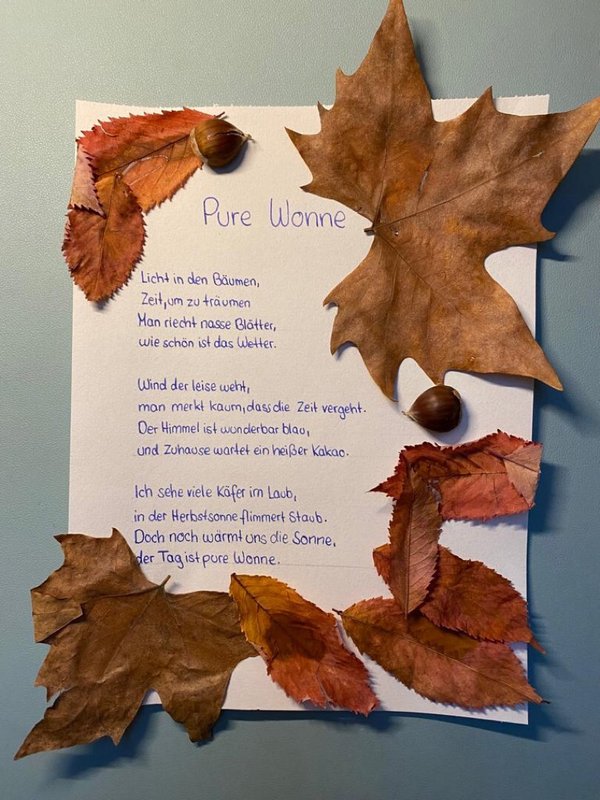 Pure Wonne
Licht in den Bäumen,
Zeit, um zu träumen
Man riecht nasse Blätter,
wie schön ist das Wetter.
Wind der leise weht,
man merkt kaum, dass die Zeit vergeht.
Der Himmel ist wunderbar blau,
und Zuhause wartet ein heißer Kakao.
Ich sehe viele Käfer im Laub,
in der Herbstsonne flimmert Staub.
Doch noch wärmt uns die Sonne,
der Tag ist pure Wonne.